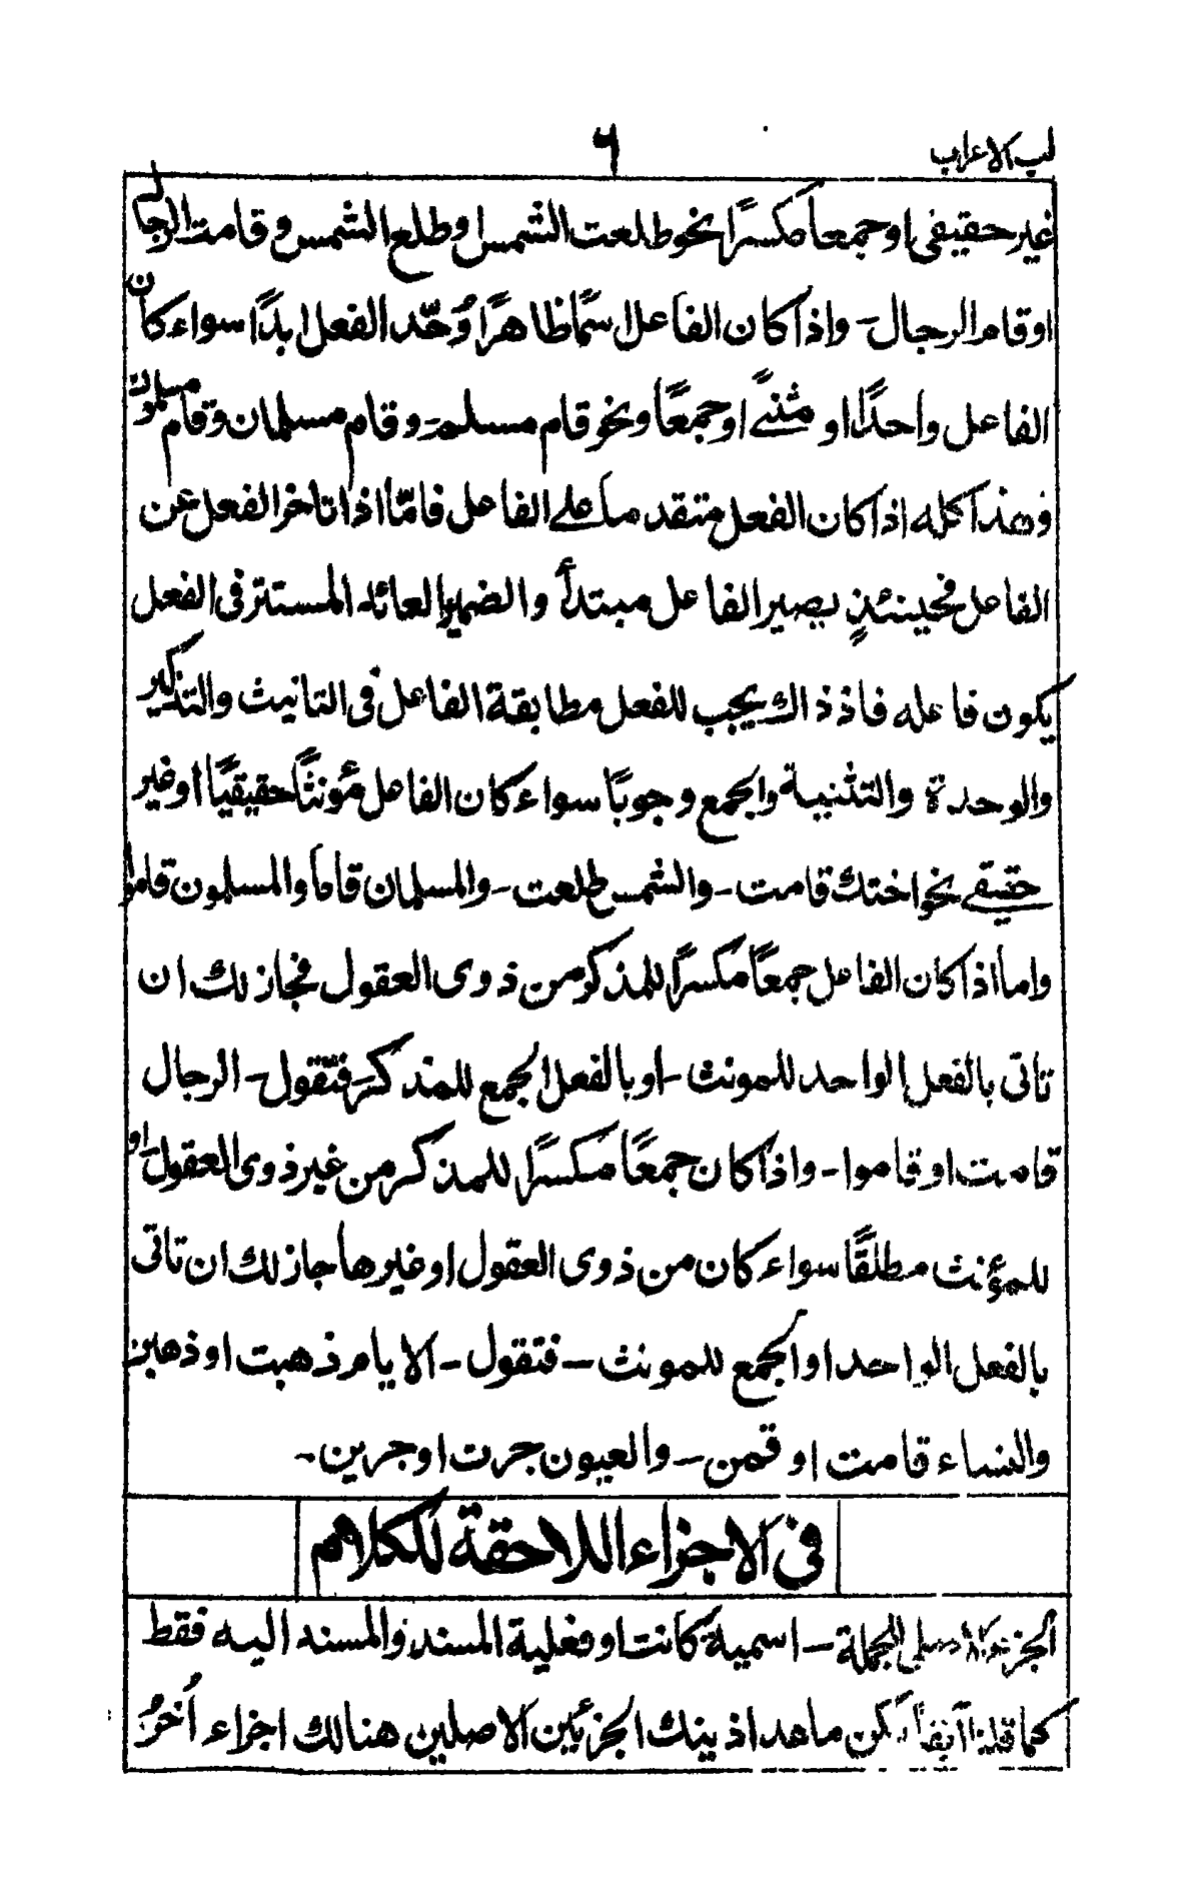 لب الاعراب
۶
غير حقيقى او جمعاً مكسرًا نحو طلعت الشمس او طلع الشمس و قامت الرجال
او قام الرجال - واذا كان الفاعل اسمًا ظاهرًا وُحّد الفعل ابدًا سواء كان
الفاعل واحدًا او مثنًے او جمعًا ونحو قام مسلم - وقام مسلمان وقام مسلمون
وهذا كله اذا كان الفعل متقدماً علے الفاعل فامّا اذا تاخر الفعل عن
الفاعل فحينئذٍ يصير الفاعل مبتدأ والضمير العائد المستتر فى الفعل
يكون فاعله فاذ ذاك يجب للفعل مطابقة الفاعل فى التانيث والتذكير
والوحدة والتثنية والجمع وجوبًا سواء كان الفاعل مؤنثًا حقيقيًا او غير
حقيقے نحو اختك قامت - والشمس طلعت - والمسلمان قاما والمسلمون قاموا
واما اذا كان الفاعل جمعًا مكسرًا للمذكر من ذوى العقول فجاز لك ان
تاتى بالفعل الواحد للمونث - او بالفعل الجمع للمذكر - فتقول - الرجال
قامت او قاموا - واذا كان جمعًا مكسرًا للمذكر من غير ذوى العقول - او
للمؤنث مطلقًا سواء كان من ذوى العقول او غيرها جاز لك ان تاتى
بالفعل الواحد او الجمع للمونث - فتقول - الايام ذهبت او ذهبن
والنساء قامت او قمن - والعيون جرت او جرين -
فى الاجزاء اللاحقة للكلام
الجزء الجملة - اسمية كانت او فعلية المسند والمسند اليه فقط
كما قلنا آنفاً لكن ماهدا ذينك الجزئين الاصلين هنالك اجزاء اُخرُ